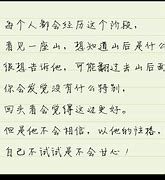 每个人都会经历这个阶段,
看见一座山,想知道山后是什么
很想告诉他,可能翻过去山后面
你会发觉没有什么特别,
回头看会觉得这边更好。
但是他不会相信,以他的性格,
自己不试试是不会甘心!